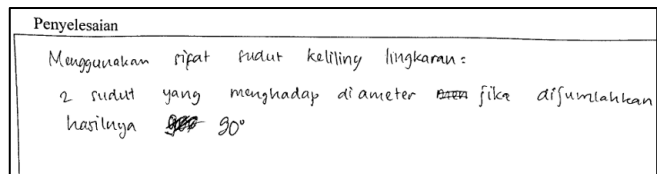 Penyelesaian
Menggunakan sifat sudut keliling lingkaran:
2 sudut yang menghadap diameter jika dijumlahkan
hasilnya 90°